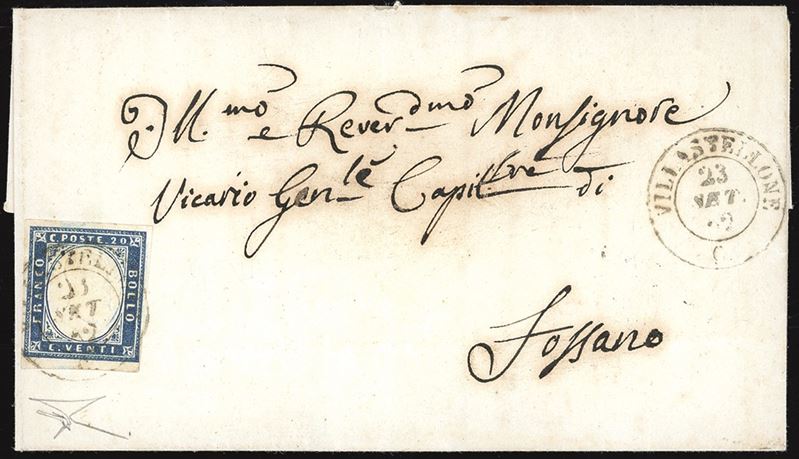 Ill.mo e Rever.dmo Monsignore
Vicario Gen.le Capit.lre di
Fossano
VILLASTELLONE
23
SET
C. POSTE. 20
FRANCO
BOLLO
C. VENTI
23
SET